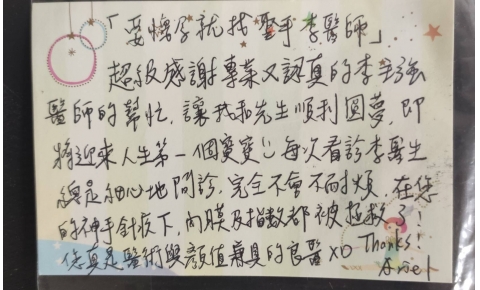 「要懷孕就找聖手李醫師」...
超級感謝專業又認真的李
醫師的幫忙, 讓我和先生順利圓夢, 即
將迎來人生第一個寶寶!! 每次看診李醫生
總是細心地問診, 完全不會不耐煩, 在您
的神手針灸下, 內膜及指數都被拯救了!
您真是醫術與顏值兼具的良醫 XD Thanks!
Ariel